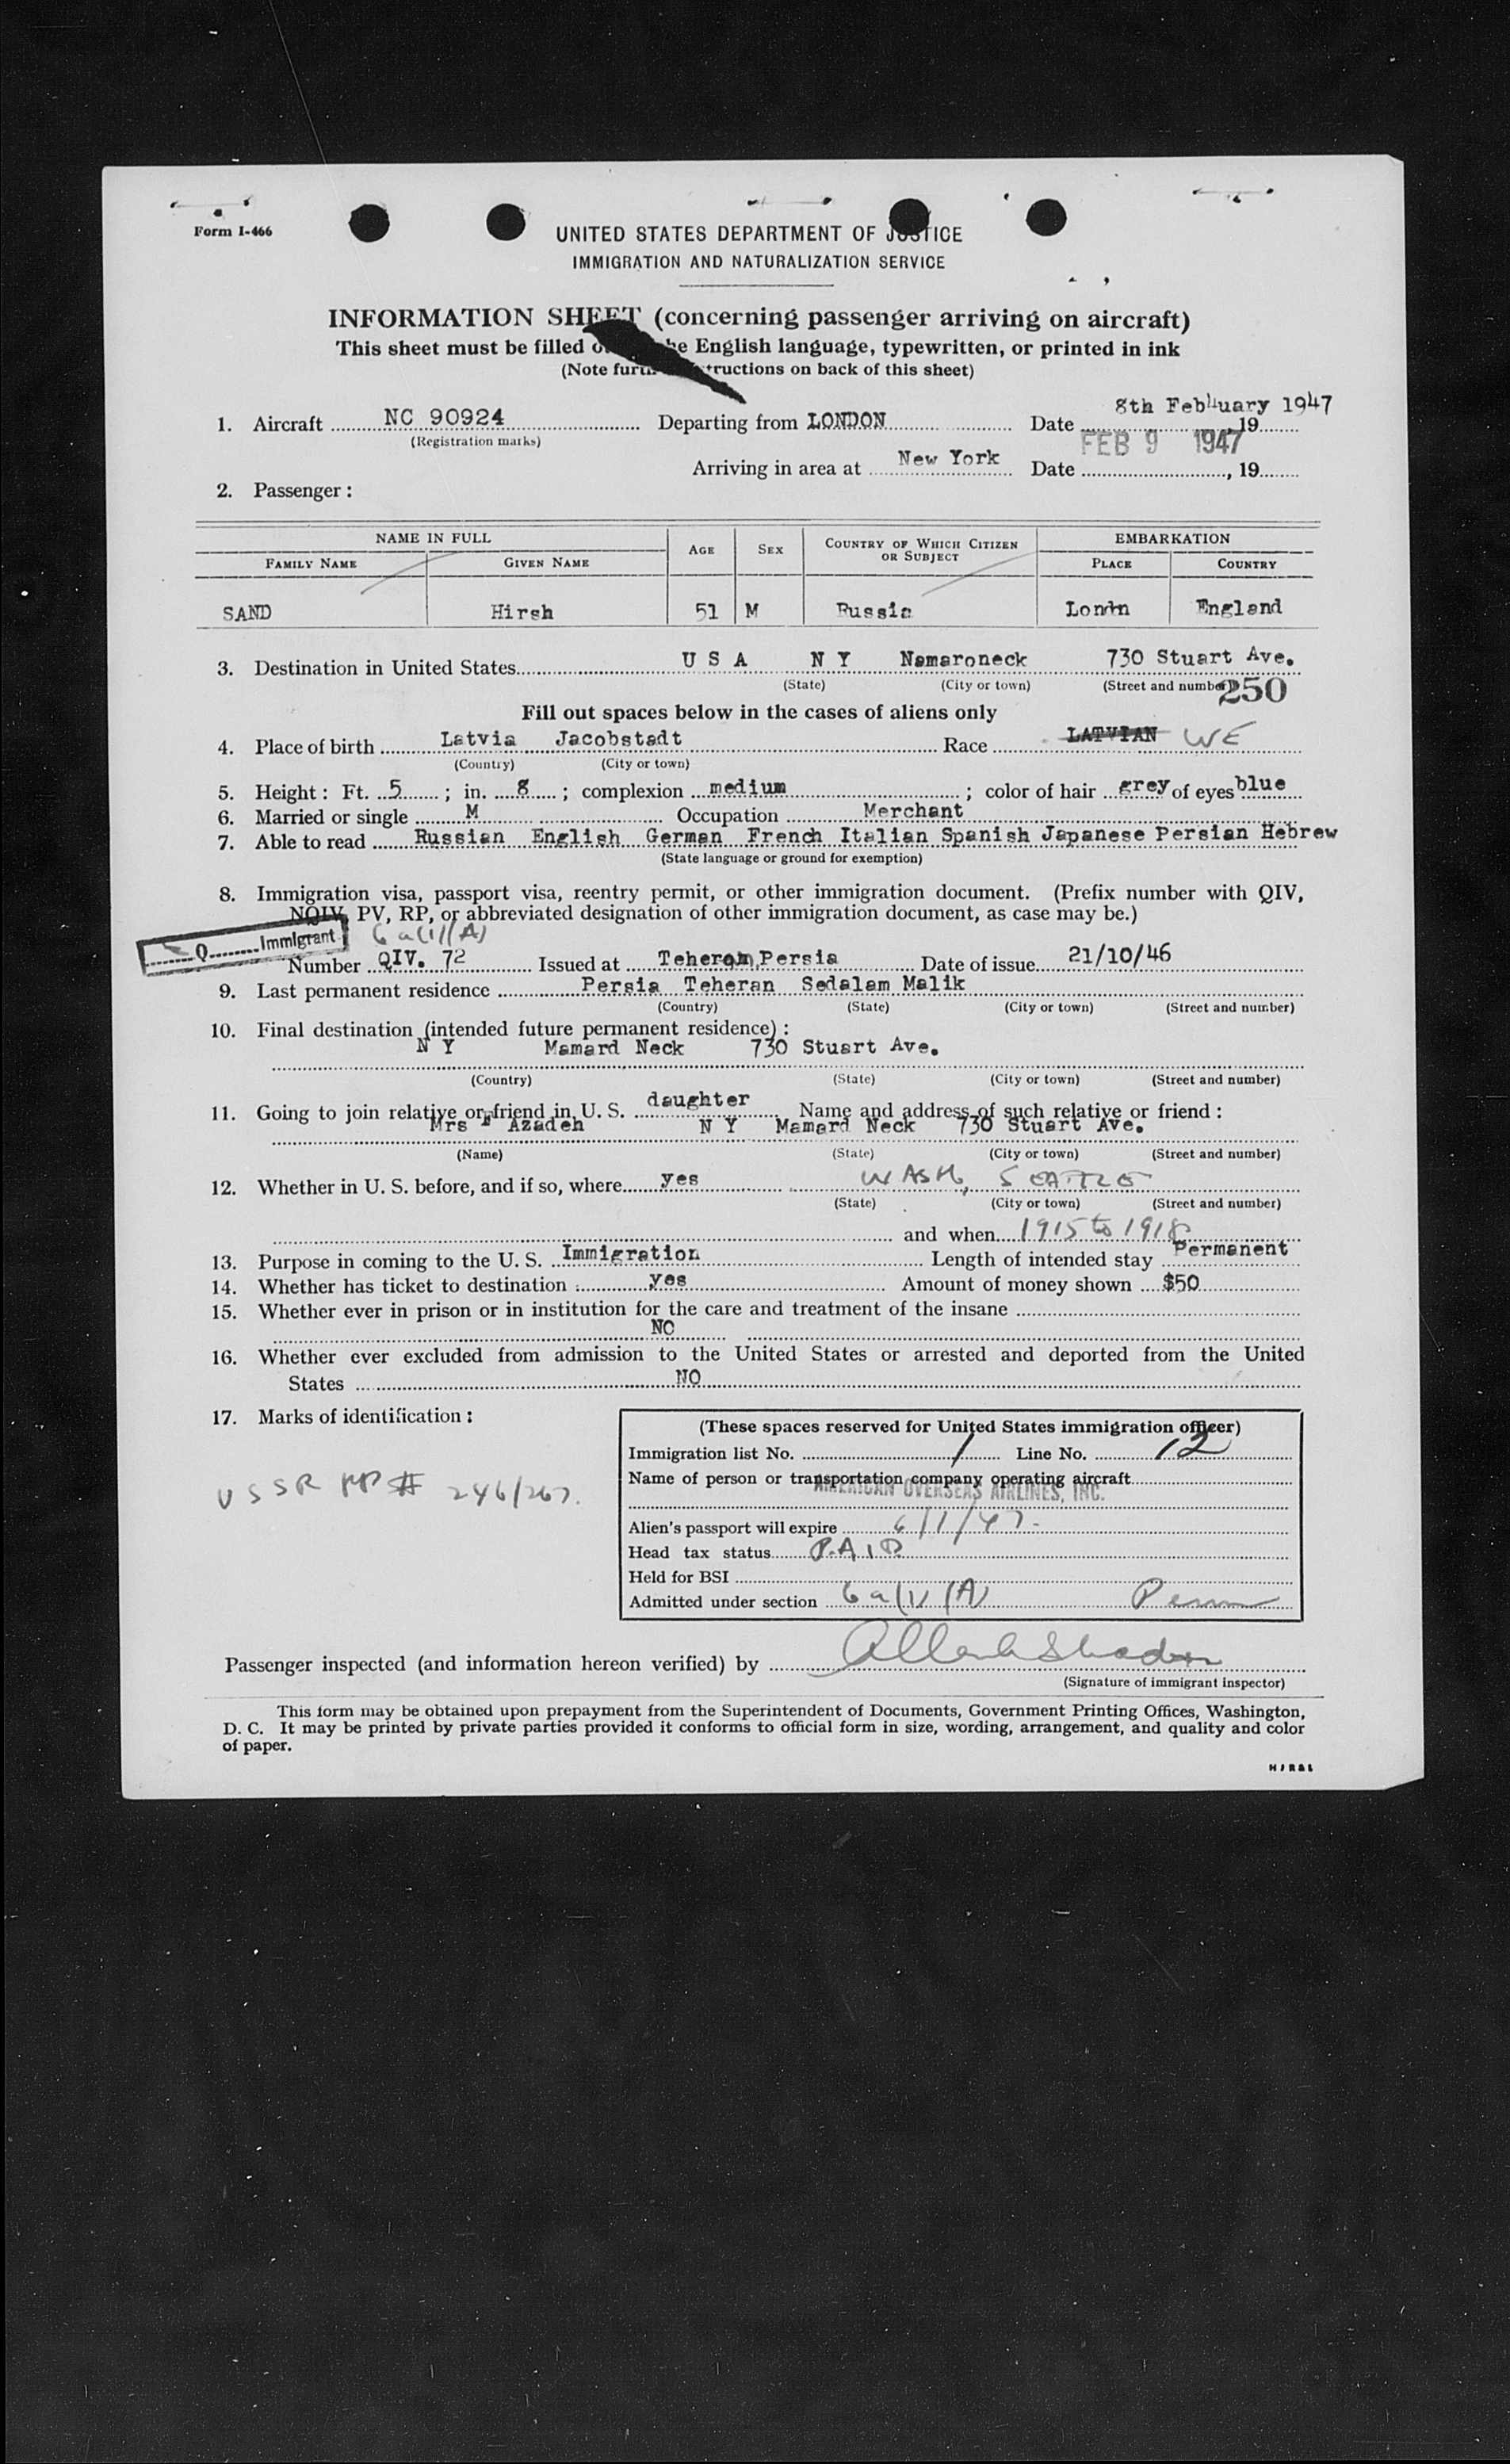 Form I-466
UNITED STATES DEPARTMENT OF JUSTICE
IMMIGRATION AND NATURALIZATION SERVICE
INFORMATION SHEET (concerning passenger arriving on aircraft)
This sheet must be filled o he English language, typewritten, or printed in ink
(Note further instructions on back of this sheet)
8th February 1947
1. Aircraft NC 90924 Departing from LONDON Date , 19
(Registration marks)
FEB 9 1947
Arriving in area at New York Date , 19
2. Passenger:
NAME IN FULL AGE SEX COUNTRY OF WHICH CITIZEN OR SUBJECT EMBARKATION
FAMILY NAME GIVEN NAME PLACE COUNTRY
SAND Hirsh 51 M Russia Londn England
3. Destination in United States U S A N Y Namaroneck 730 Stuart Ave.
(State) (City or town) (Street and number)
250
Fill out spaces below in the cases of aliens only
4. Place of birth Latvia Jacobstadt Race LATVIAN WE
(Country) (City or town)
5. Height: Ft. 5; in. 8; complexion medium; color of hair grey of eyes blue
6. Married or single M Occupation Merchant
7. Able to read Russian English German French Italian Spanish Japanese Persian Hebrew
(State language or ground for exemption)
8. Immigration visa, passport visa, reentry permit, or other immigration document. (Prefix number with QIV,
NQIV, PV, RP, or abbreviated designation of other immigration document, as case may be.)
Q Immigrant 6 a(1)(A)
Number QIV. 72 Issued at Teheran, Persia Date of issue 21/10/46
9. Last permanent residence Persia Teheran Sedalam Malik
(Country) (State) (City or town) (Street and number)
10. Final destination (intended future permanent residence):
N Y Mamard Neck 730 Stuart Ave.
(Country) (State) (City or town) (Street and number)
11. Going to join relative or friend in U. S. daughter Name and address of such relative or friend:
Mrs F Azadeh N Y Mamard Neck 730 Stuart Ave.
(Name) (State) (City or town) (Street and number)
12. Whether in U. S. before, and if so, where yes WASH, SEATTLE
(State) (City or town) (Street and number)
and when 1915 to 1918
13. Purpose in coming to the U. S. Immigration Length of intended stay Permanent
14. Whether has ticket to destination yes Amount of money shown $50
15. Whether ever in prison or in institution for the care and treatment of the insane
NO
16. Whether ever excluded from admission to the United States or arrested and deported from the United
States NO
17. Marks of identification:
USSR PP# 246/267.
(These spaces reserved for United States immigration officer)
Immigration list No. 1 Line No. 12
Name of person or transportation company operating aircraft
AMERICAN OVERSEAS AIRLINES, INC.
Alien's passport will expire 6/1/47
Head tax status PAID
Held for BSI
Admitted under section 6 a(1)(A) Perm
Passenger inspected (and information hereon verified) by
(Signature of immigrant inspector)
This form may be obtained upon prepayment from the Superintendent of Documents, Government Printing Offices, Washington,
D. C. It may be printed by private parties provided it conforms to official form in size, wording, arrangement, and quality and color
of paper.